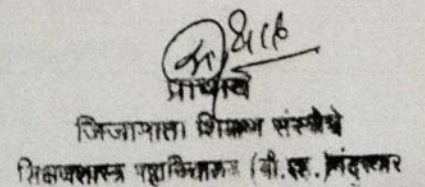 प्राचार्य
जिजामाता शिक्षण संस्थेचे
शिक्षणशास्त्र महाविद्यालय (बी.एड.) नंदुरबार